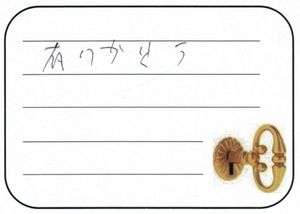 有りがとう